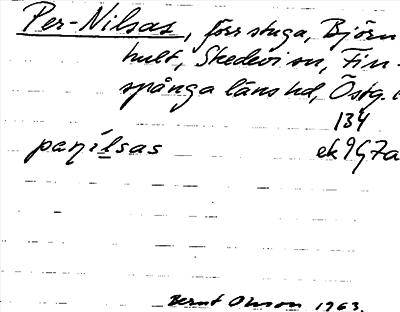 Per-Nilsas, förr stuga, Björn
hult, Skedevi sn, Fin-
spånga läns hd, Östg.
134
paṇílsas ek 9G7a
Bernt Olsson 1963.